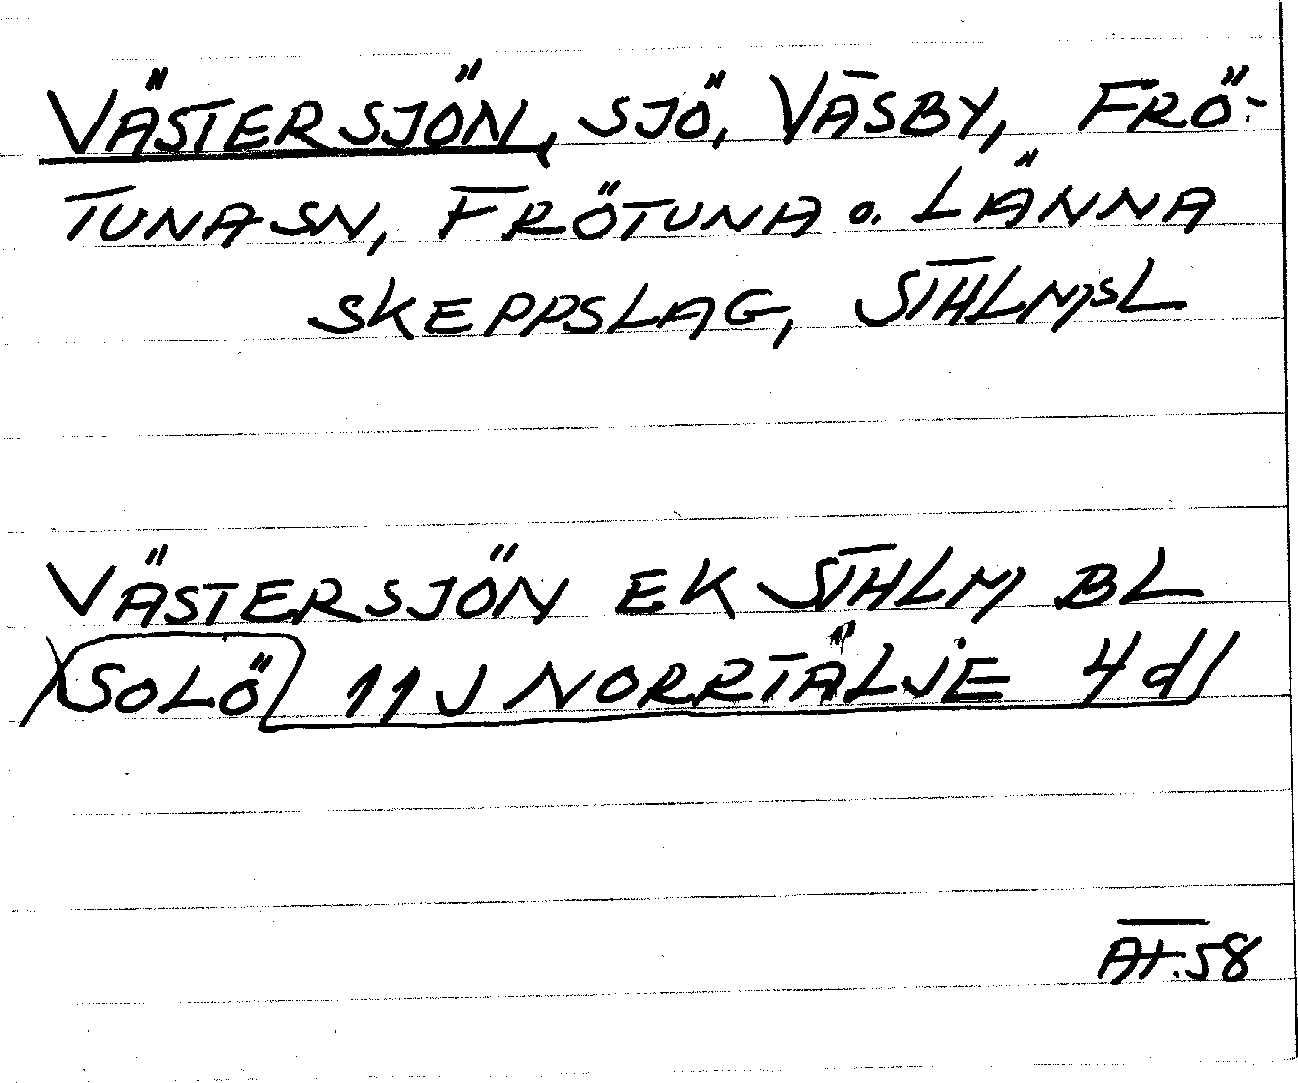 VÄSTERSJÖN, SJÖ, VÄSBY, FRÖ-
TUNA SN, FRÖTUNA o. LÄNNA
SKEPPSLAG, STHLMSL
VÄSTERSJÖN EK STHLM BL
SOLÖ 11J NORRTÄLJE 4d
At.58